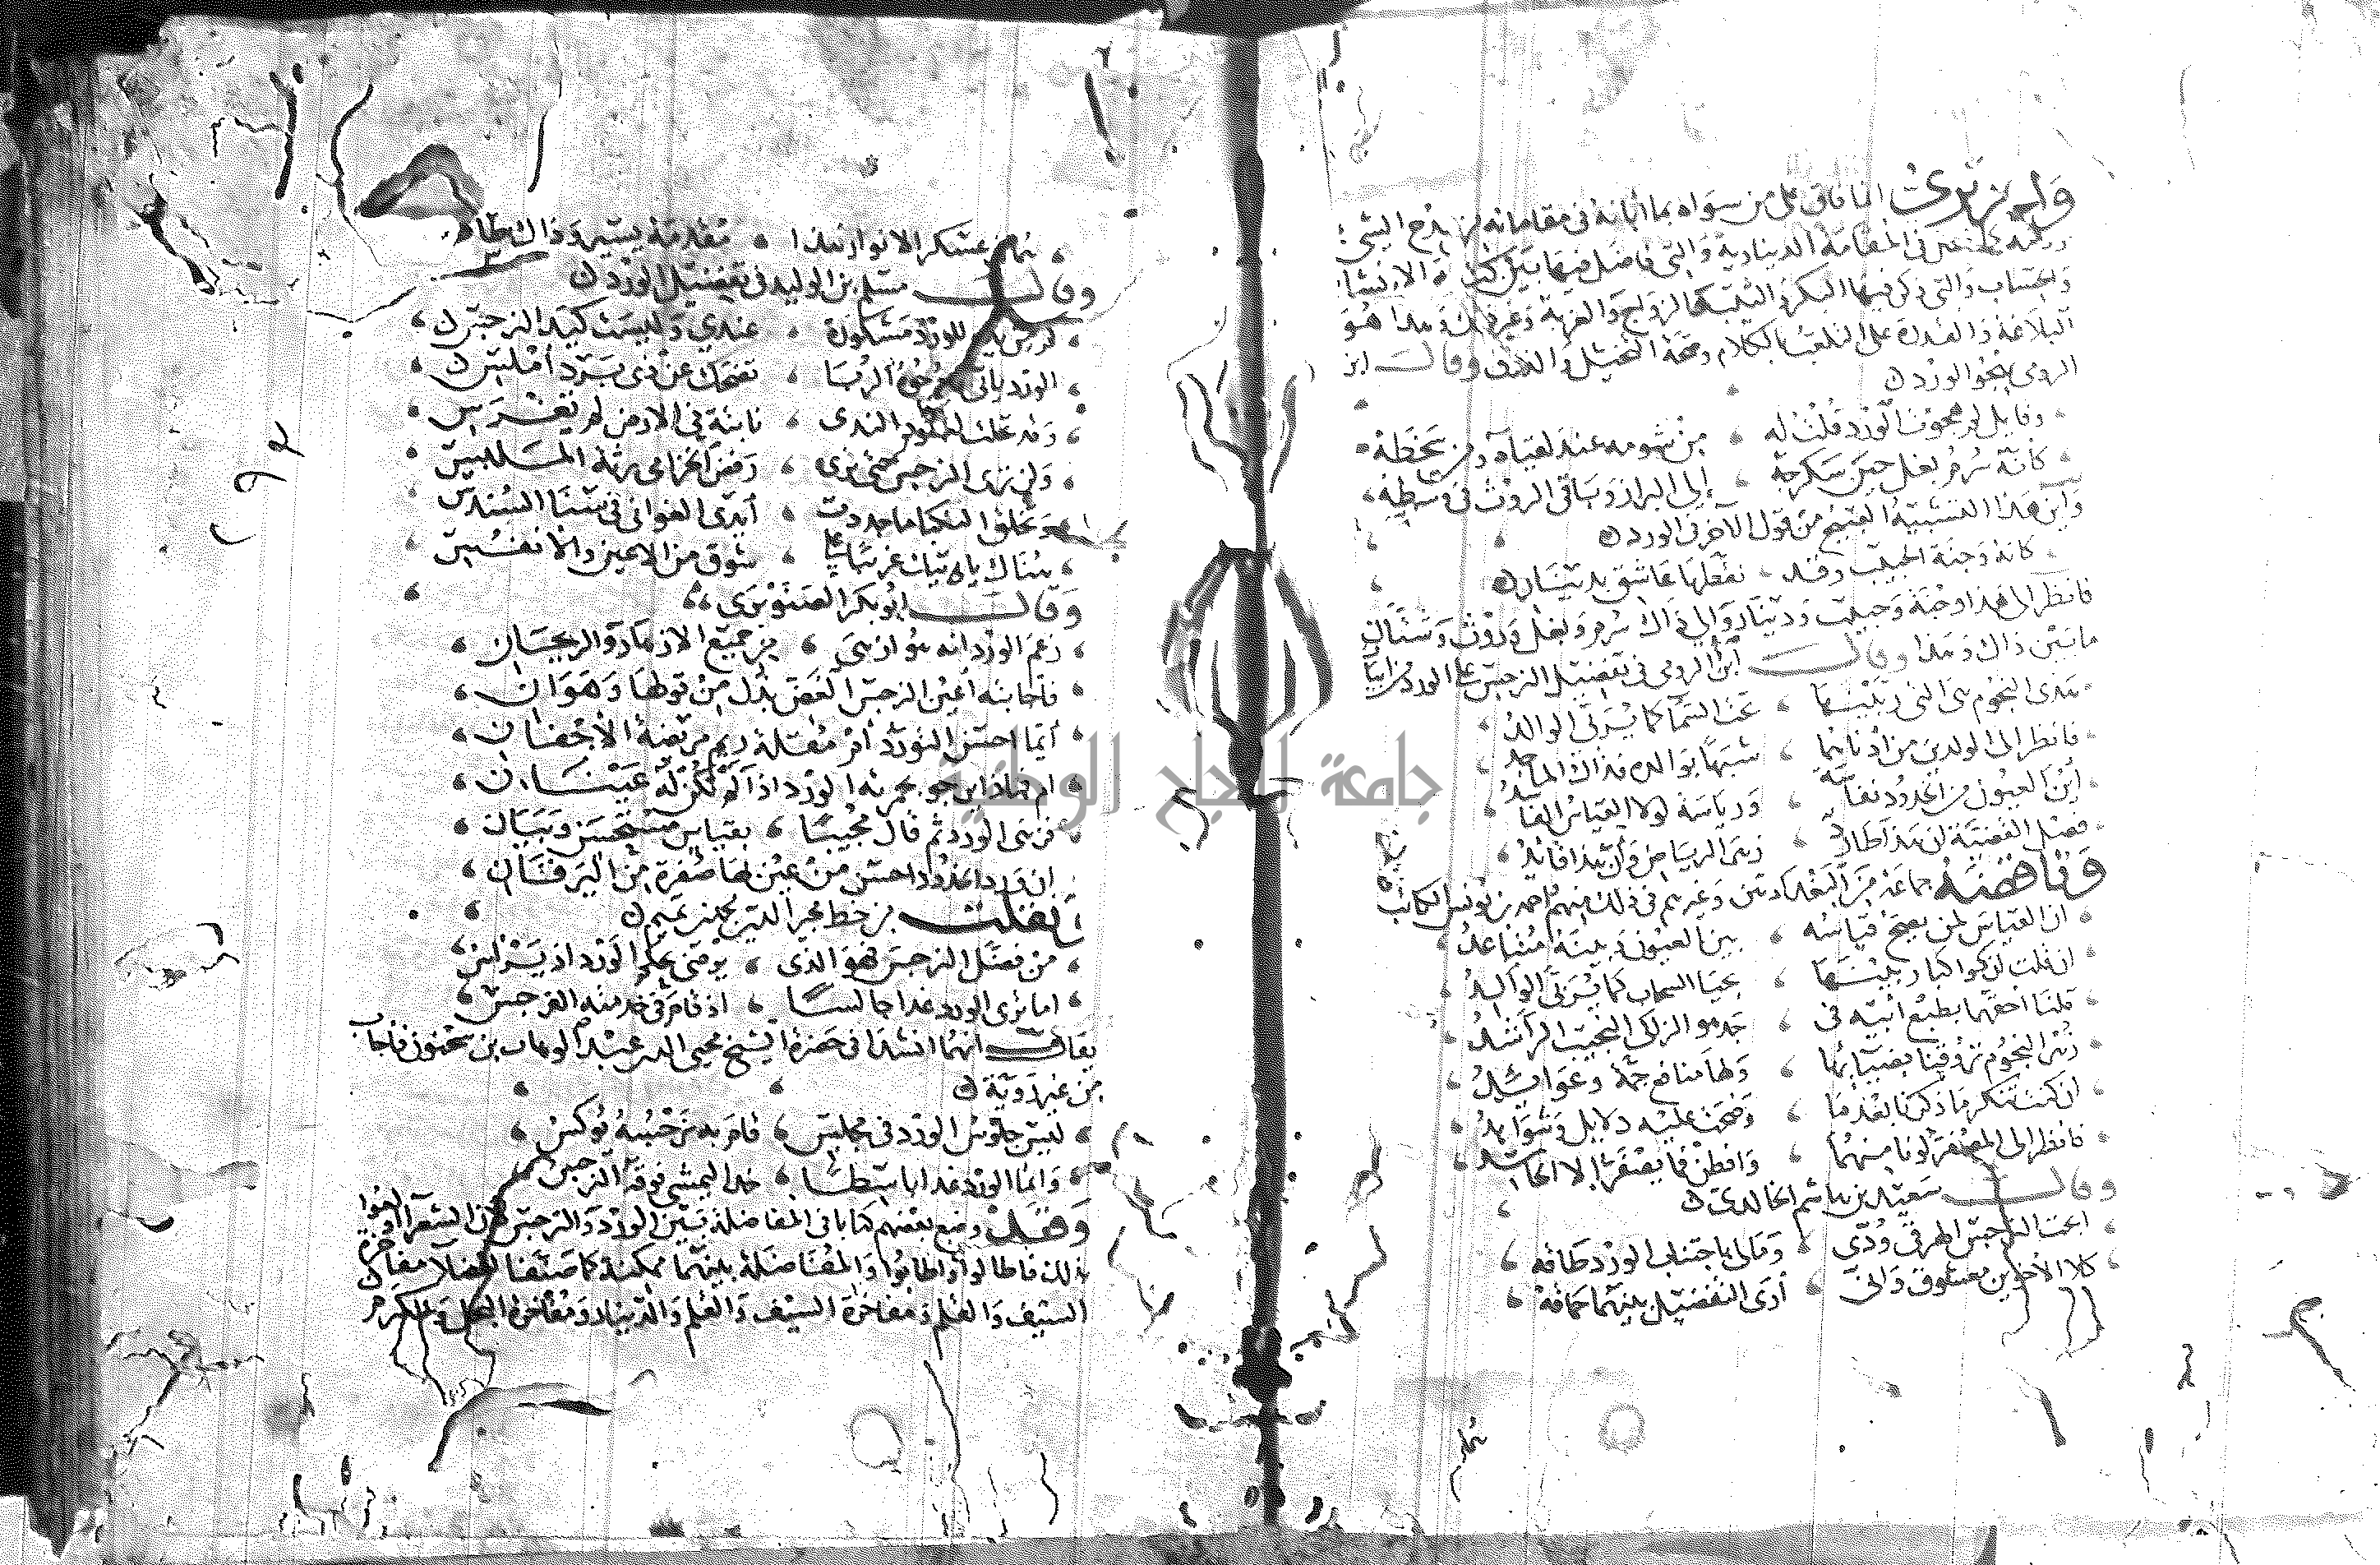 والحريري انما فاق على من سواه بما ابانه في مقاماته من مدح الشيء
وذمه في المقامة الدينارية والتي فاضل فيها بين كتبة الانشا
والحساب والتي ذكر فيها البكر والثيب والزواج والعزبة وغير ذلك وهذا هو
البلاغة والقدرة على التلعب بالكلام وصحة التخيل والذوق وقال ابن
الرومي يهجو الورد
وقايل لم هجوت الورد قلت له من شومه عند لقياه ومن سخطه
كانه سرم بغل حين سكرجه الى البراز وباقي الروث في وسطه
واين هذا التشبيه القبيح من قول الآخر في الورد
كانه وجنة الحبيب وقد نقطها عاشق بدينار
فانظر الى هذا وجنة وحبيب ودينار والى ذاك سرم وبغل وروث وشتان
ما بين ذاك وهذا وقال ابن الرومي في تفضيل النرجس على الورد من ابيات
هذى النجوم هي التي ربتهما بحيا السما كما يربي الوالد
فانظر الى الولدين من ادناهما شبها بوالده فذاك الماجد
اين العيون من الخدود نفاسة ورياسة لولا القياس الفاسد
فصل القضية ان هذا طارد زهر الرياض وان هذا قايد
وناقضه جماعة من البغداديين وغيرهم في ذلك منهم احمد بن يونس الكاتب
ان القياس لمن يصح قياسه بين العيون وبينه متباعد
ان قلت ان كواكبا ربتهما بحيا السحاب كما يربي الوالد
قلنا احقهما بطبع ابيه في جدواه الزاكي النجيب الراشد
زهر النجوم تروقنا بضيائها ولها منافع جمة وعوايد
ان كنت تنكر ما ذكرنا بعدما وضحت عليه دلايل وشواهد
فانظر الى المصفر لونا منهما وافطن فما يصفر الا الحاسد
وقال سعيد بن هاشم الخالدي
ابحت النرجس الوردي ودي ومالي باجتناب الورد طاقه
كلا الاخوين معشوق واني ارى التفضيل بينهما حماقه
هما عسكر الانوار هذا مقدمة يسير وذاك ساقه
وقال مسلم بن الوليد في تفضيل الورد
كم من يد للورد مشكورة عندي وليست كيد النرجس
الورد ياتي ووجوه الربا تضحك عن ذي برد املس
وقد تحلت بعقود الندى نابتة في الارض لم تغرس
ولن ترى النرجس حتى ترى روض الخزامى رثة الملبس
وتخلق النكبا ما جددت ايدي الغوادي من سنا السندس
هناك ياتيك غريبا على شوق من الاعين والانفس
وقال ابو بكر الصنوبري
زعم الورد انه هو ازهى من جميع الازهار والريحان
فاجابته اعين النرجس الغض بذل من قولها وهوان
ايما احسن التورد ام مقلة ريم مريضة الاجفان
ام فماذا يرجو بحمرته الورد اذا لم تكن له عينان
فزهى الورد ثم قال مجيبا بقياس مستحسن وبيان
ان ورد الخدود احسن من عين بها صفرة من اليرقان
نقلت من خط مجير الدين محمد بن تميم
من فضل النرجس فهو الذي يرضى بحكم الورد اذ يراس
اما ترى الورد غدا جالسا اذ قام في خدمته النرجس
يقال انهما انشدا في حضرة الشيخ محيي الدين عبد الوهاب بن سحنون فاجاب
من غير روية
ليس جلوس الورد في مجلس قام به نرجسه يوكس
وانما الورد غدا باسطا خدا ليمشي فوقه النرجس
وقد وضع بعضهم كتابا في المفاضلة بين الورد والنرجس
ذلك فاطالوا واطابوا والمفاضلة بينهما ممكنة كما صنف الفضلا مفاخرة
السيف والقلم ومفاخرة السيف والقلم والدينار ومفاخرة البخل والكرم
جامعة النجاح الوطنية